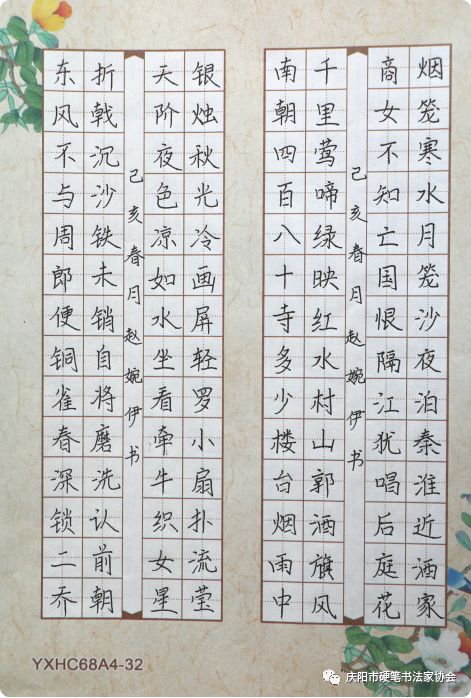 烟笼寒水月笼沙夜泊秦淮近酒家
商女不知亡国恨隔江犹唱后庭花
己亥春月赵婉伊书
千里莺啼绿映红水村山郭酒旗风
南朝四百八十寺多少楼台烟雨中
银烛秋光冷画屏轻罗小扇扑流莹
天阶夜色凉如水坐看牵牛织女星
己亥春月赵婉伊书
折戟沉沙铁未销自将磨洗认前朝
东风不与周郎便铜雀春深锁二乔
YXHC68A4-32
庆阳市硬笔书法家协会